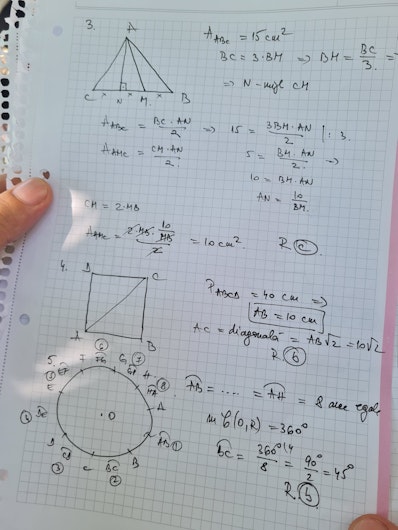 3.
A
C N M B
A_ABC = 15 cm²
BC = 3·BM ⇒ BM = BC/3.
⇒ N - mijl CM
A_ABC = BC·AN/2 ⇒ 15 = 3BM·AN/2 |: 3.
A_AMC = CM·AN/2. 5 = BM·AN/2. ⇒
10 = BM·AN
AN = 10/BM.
CM = 2·MB
A_AMC = 2·MB·10/MB/2 = 10 cm² R c.
4.
D C
A B
P_ABCD = 40 cm ⇒
AB = 10 cm
AC = diagonală = AB√2 = 10√2
R. b
5.
6 F FG G 7 GH H
E HA 8
O A
D AB 1
3 C BC 2 B
AB = ..... = AH = 8 arce egale
m C(O,R) = 360°
BC = 360°/8 = 90°/2 = 45°
R. b